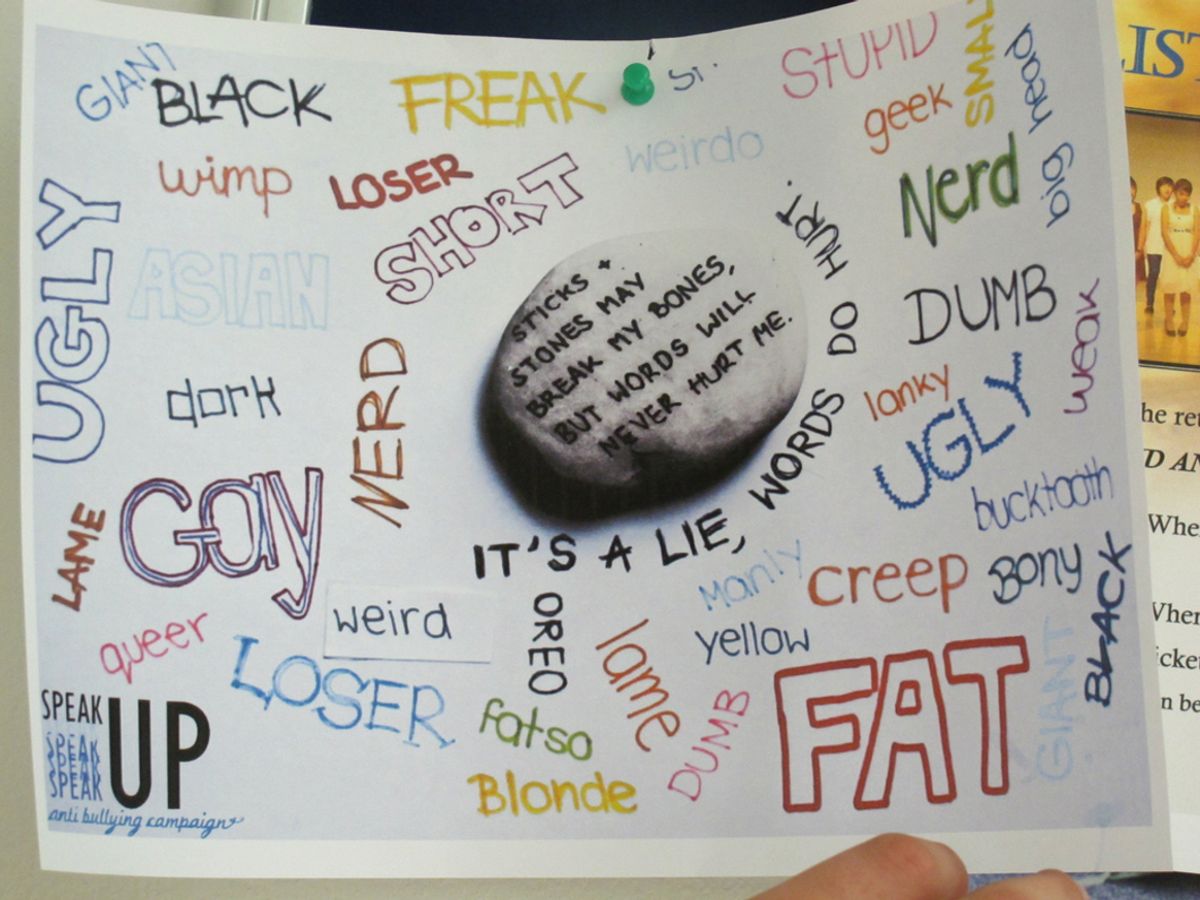 GIANT
BLACK
FREAK
ST.
STUPID
SMALL
big head
geek
wimp
LOSER
weirdo
SHORT
Nerd
UGLY
ASIAN
STICKS +
STONES MAY
BREAK MY BONES,
BUT WORDS WILL
NEVER HURT ME.
IT'S A LIE, WORDS DO HURT.
DUMB
weak
dork
NERD
lanky
UGLY
bucktooth
Gay
LAME
manly
creep
Bony
BLACK
weird
OREO
yellow
queer
LOSER
lame
FAT
GIANT
fatso
DUMB
Blonde
SPEAK UP
SPEAK
SPEAK
SPEAK
anti bullying campaign
LIST
he ret
D AN
Whe
Wher
icket
n be